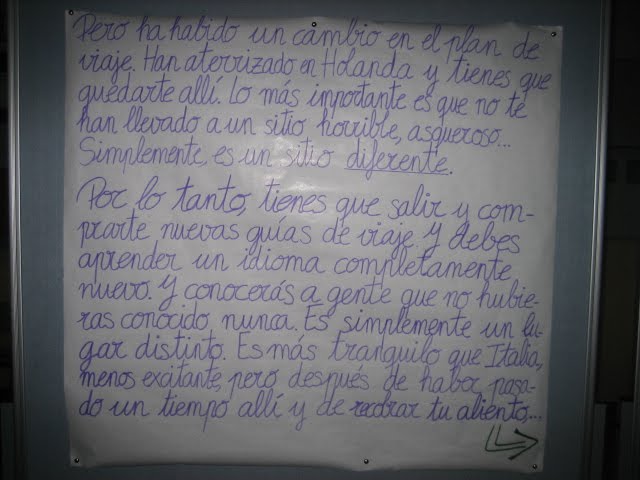 Pero ha habido un cambio en el plan de
viaje. Han aterrizado en Holanda y tienes que
quedarte allí. Lo más importante es que no te
han llevado a un sitio horrible, asqueroso...
Simplemente, es un sitio diferente.
Por lo tanto, tienes que salir y com-
prarte nuevas guías de viaje. Y debes
aprender un idioma completamente
nuevo. Y conocerás a gente que no hubie-
ras conocido nunca. Es simplemente un lu-
gar distinto. Es más tranquilo que Italia,
menos exitante, pero después de haber pasa-
do un tiempo allí y de recobrar tu aliento,...